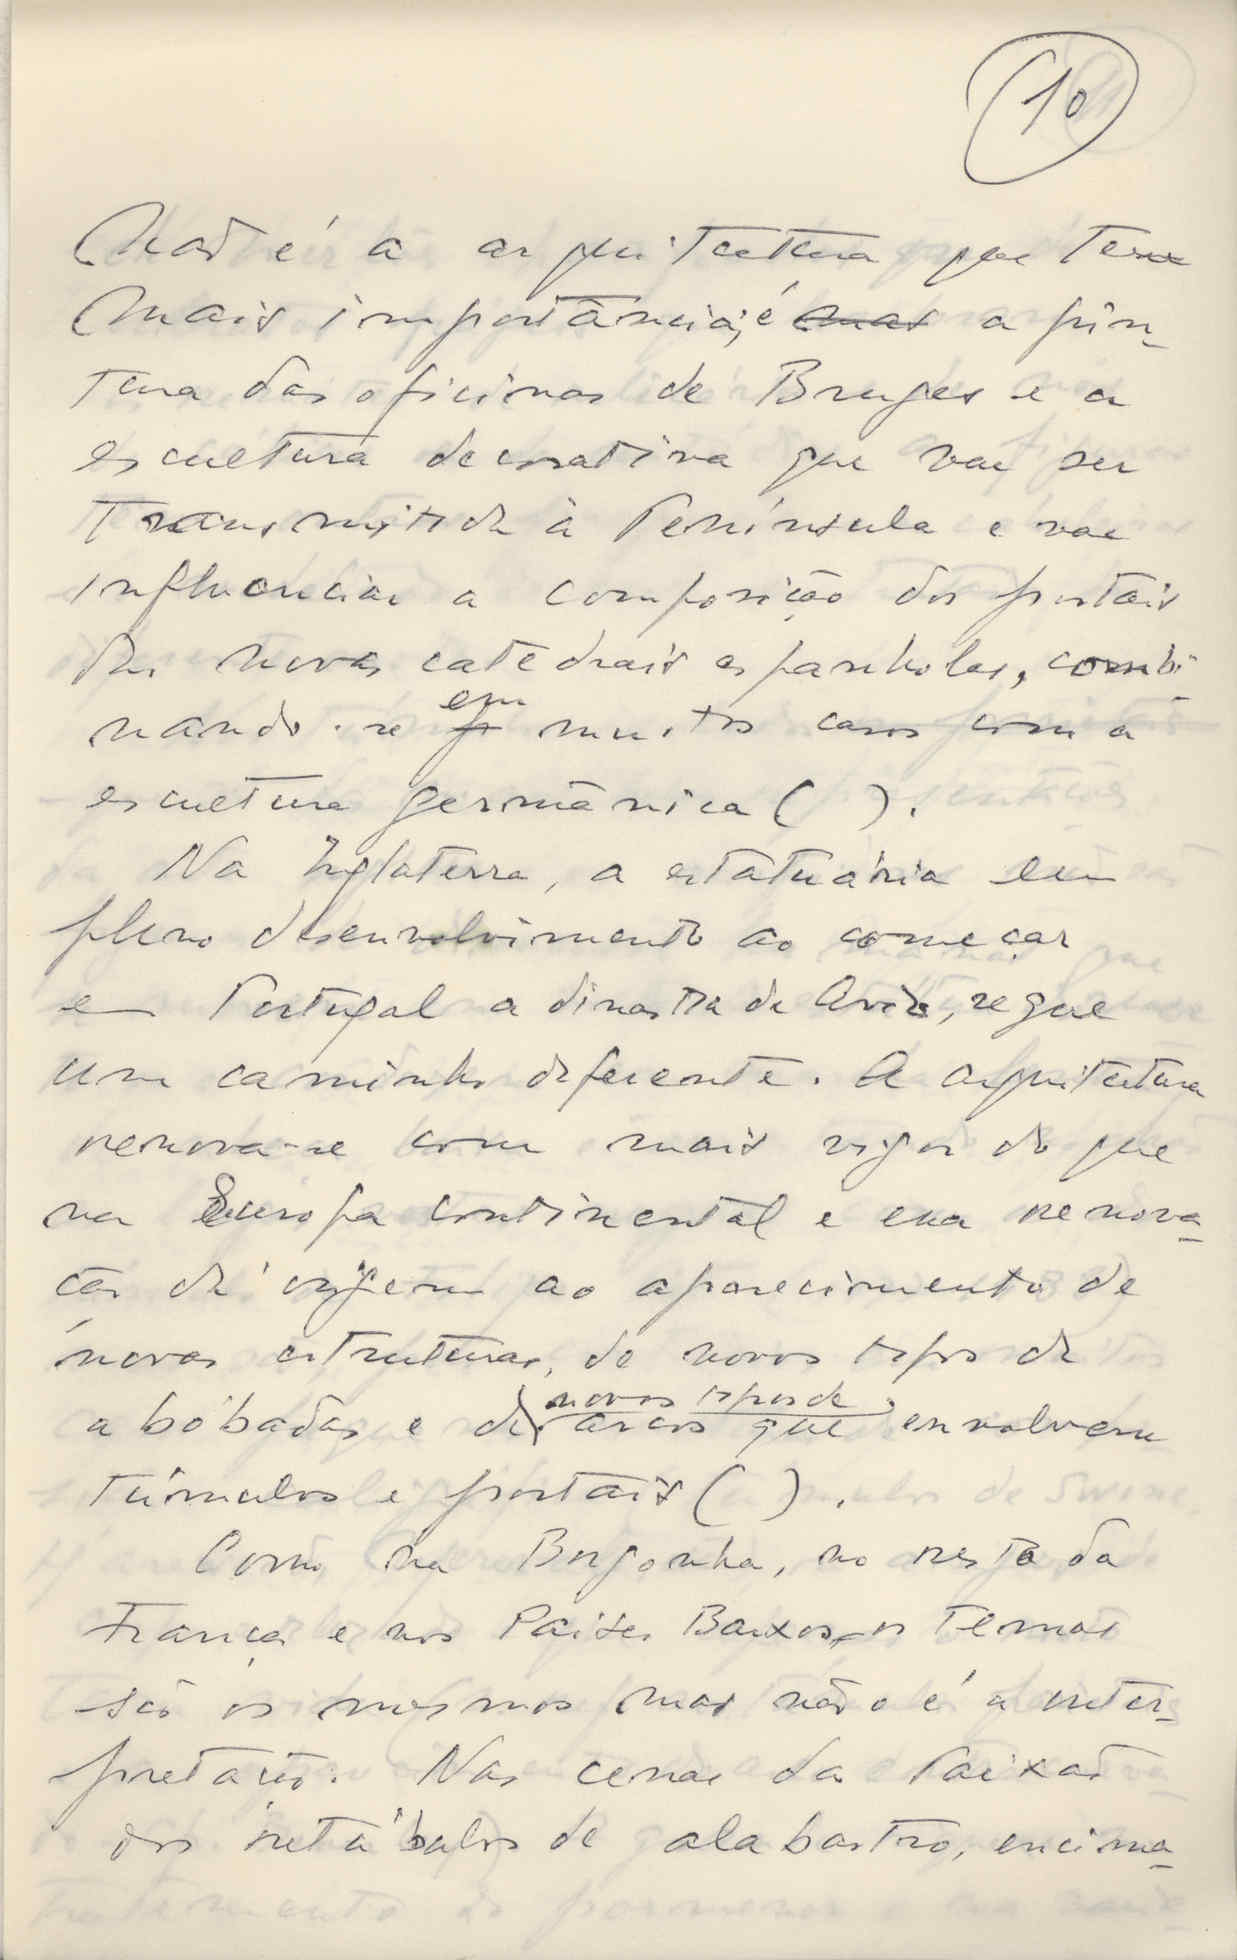 10
Não é a arquitectura que tem
mais importância; é mas a pin-
tura das oficinas de Bruges e a
escultura decorativa que vai ser
transmitida à Península e vai
influenciar a composição dos portais
das novas catedrais espanholas, combi-
nando-se em muitos casos com a
escultura germânica ( ).
Na Inglaterra, a estatuária em
pleno desenvolvimento ao começar
em Portugal a dinastia de Avis, segue
um caminho diferente. A arquitectura
renova-se com mais vigor do que
na Europa continental e essa renova-
ção dá origem ao aparecimento de
novas estruturas, de novos tipos de
abóbadas e de novos tipos de arcos que envolvem
túmulos e portais ( ).
Como na Borgonha, no resto da
França e nos Países Baixos, os temas
são os mesmos mas não o é a inter-
pretação. Nas cenas da Paixão
dos retábulos de alabastro, encima-